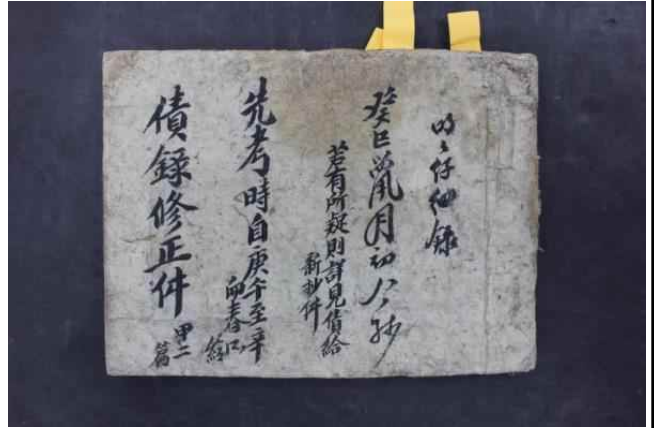 仔細錄
癸巳 月初八抄
若有所疑則詳見債給
新抄件
先考時自庚午至辛
卯春 給
債錄修正件
甲二
篇